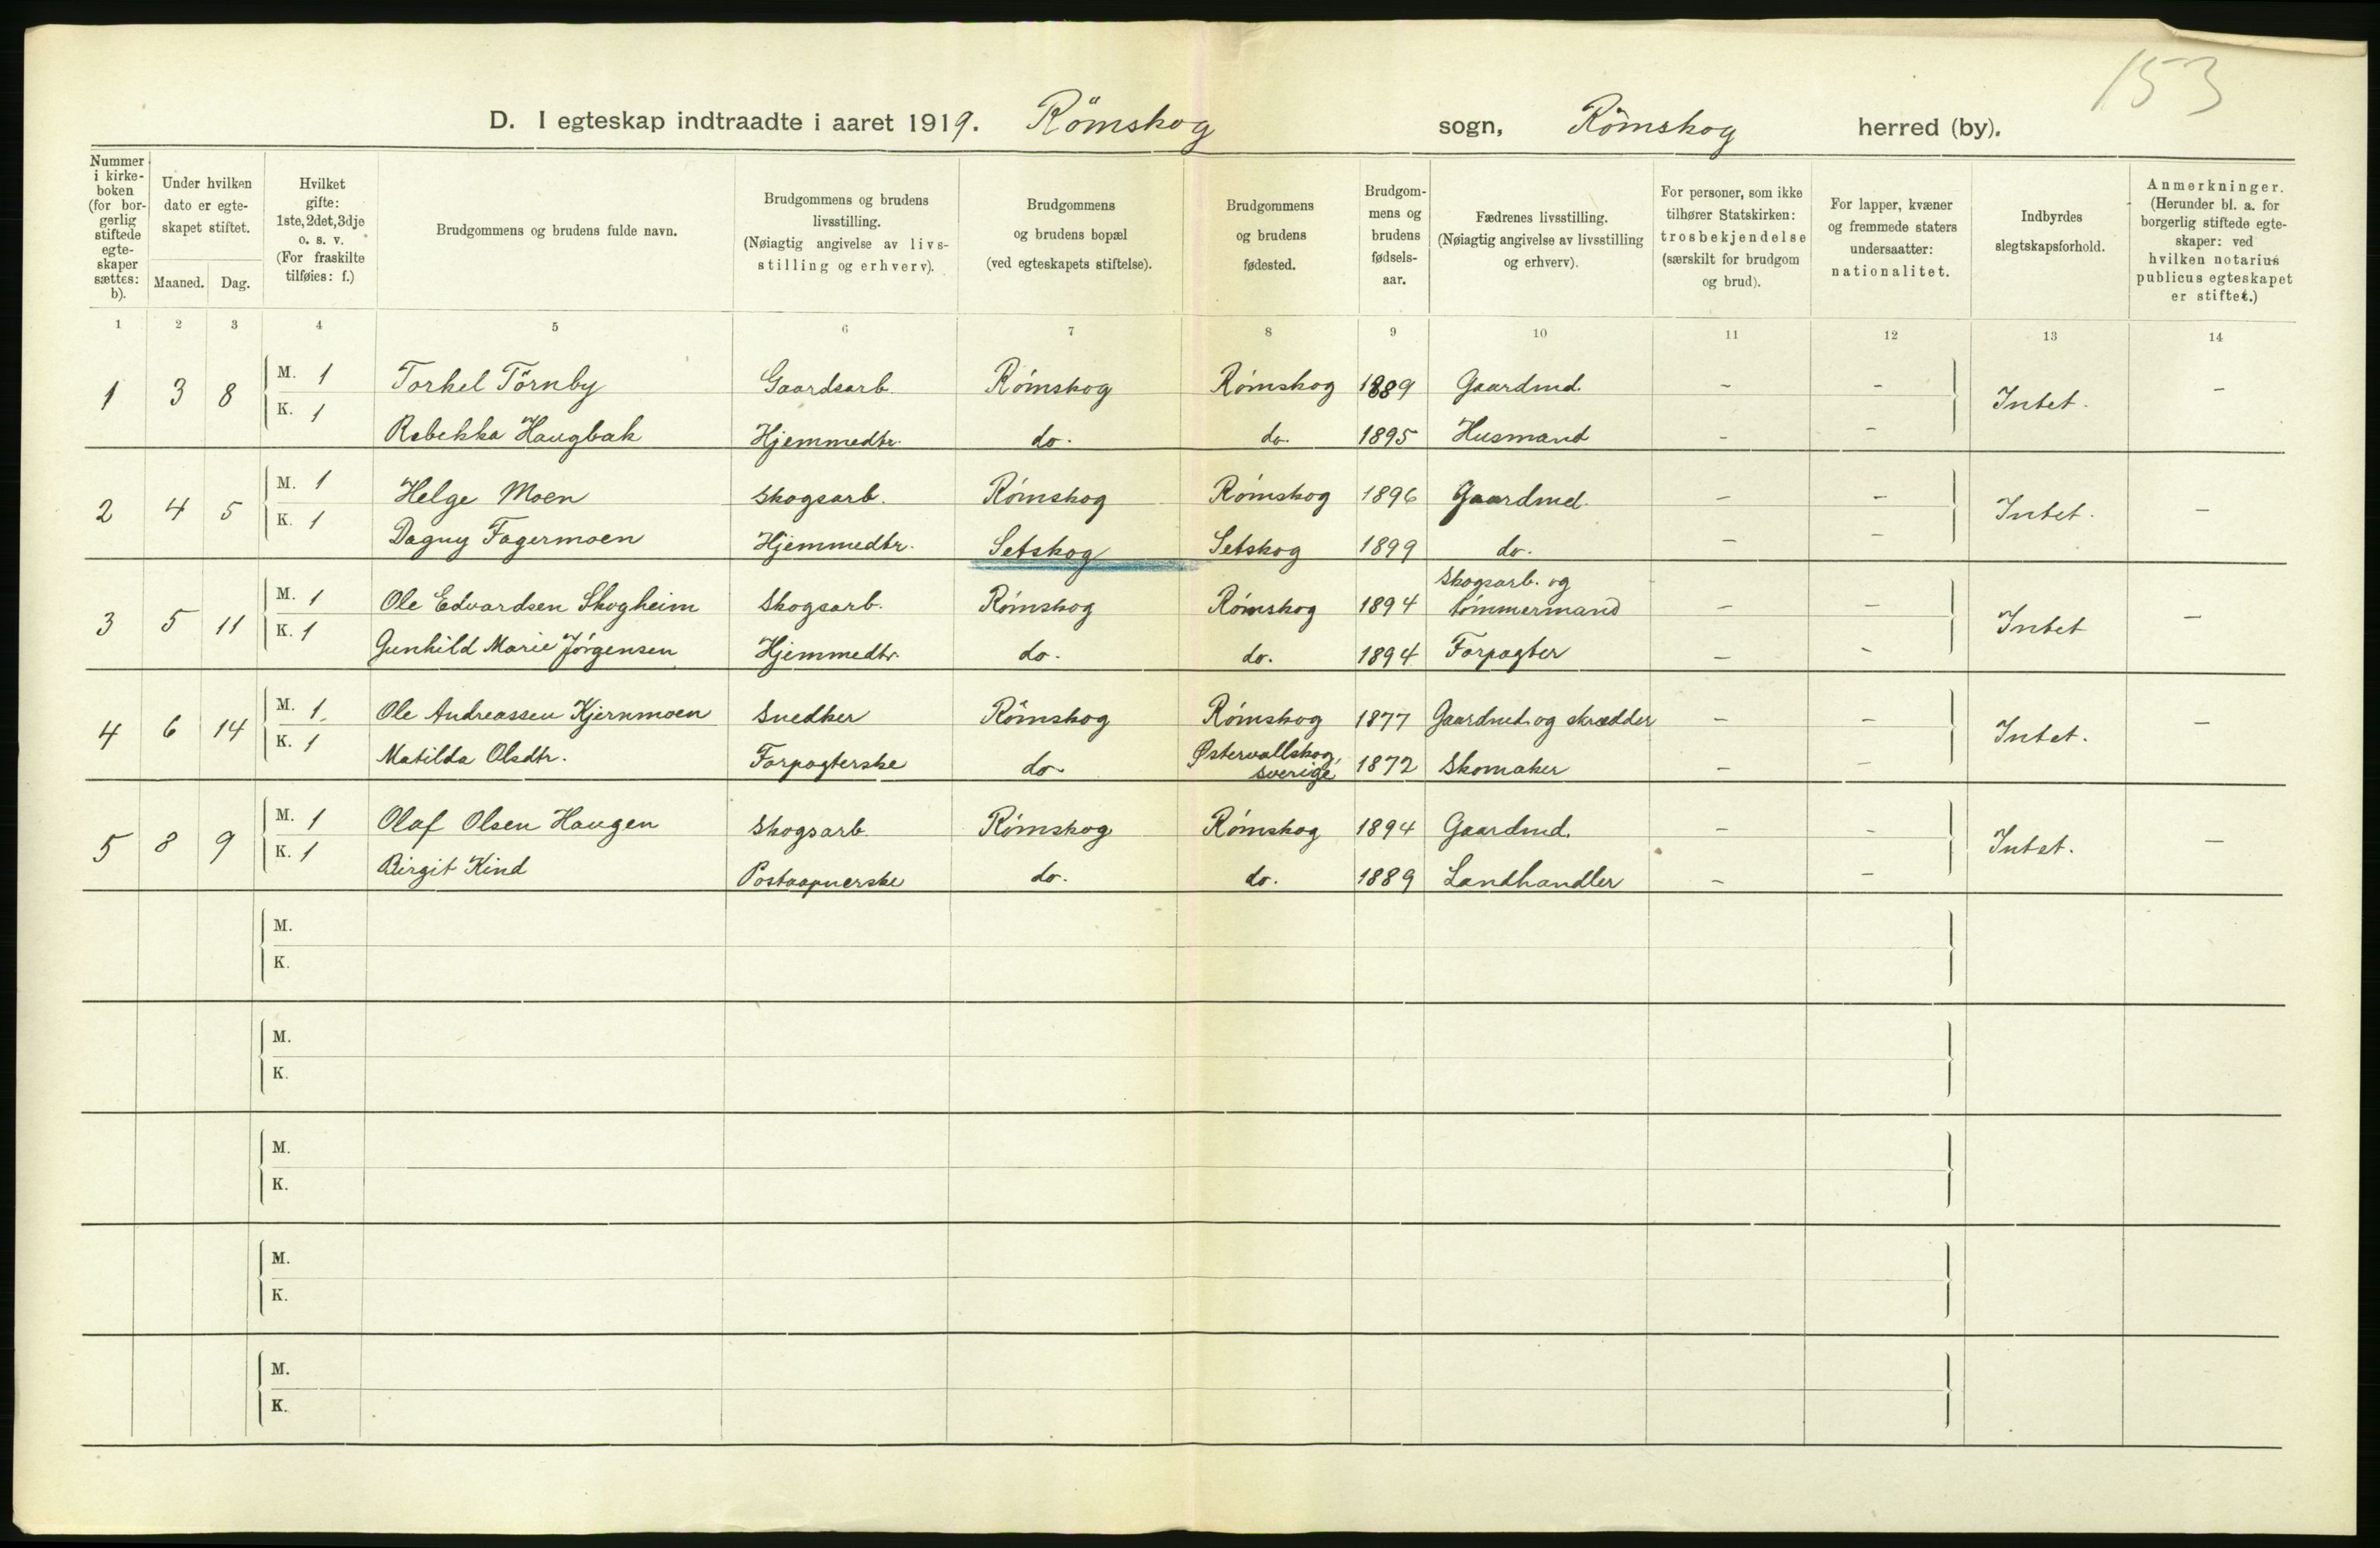 153
D. I egteskap indtraadte i aaret 1919. Römskog sogn, Römskog herred (by).
Nummer i kirke-boken (for bor-gerlig stiftede egte-skaper sættes: b).
Under hvilken dato er egte-skapet stiftet.
Maaned. Dag.
Hvilket gifte: 1ste, 2det, 3dje o. s. v. (For fraskilte tilføies: f.)
Brudgommens og brudens fulde navn.
Brudgommens og brudens livsstilling. (Nøiagtig angivelse av livs-stilling og erhverv).
Brudgommens og brudens bopæl (ved egteskapets stiftelse).
Brudgommens og brudens fødested.
Brudgom-mens og brudens fødsels-aar.
Fædrenes livsstilling. (Nøiagtig angivelse av livsstilling og erhverv).
For personer, som ikke tilhører Statskirken: trosbekjendelse (særskilt for brudgom og brud).
For lapper, kvæner og fremmede staters undersaatter: nationalitet.
Indbyrdes slegtskapsforhold.
Anmerkninger. (Herunder bl. a. for borgerlig stiftede egte-skaper: ved hvilken notarius publicus egteskapet er stiftet.)
1 2 3 4 5 6 7 8 9 10 11 12 13 14
1 3 8 M. 1 Torkel Törnby Gaardsarb. Römskog Römskog 1889 Gaardmd. - - Intet. -
K. 1 Rebekka Haugbak Hjemmedtr. do. do. 1895 Husmand - -
2 4 5 M. 1 Helge Moen Skogsarb. Römskog Römskog 1896 Gaardmd. - - Intet. -
K. 1 Dagny Fagermoen Hjemmedtr. Setskog Setskog 1899 do. - -
3 5 11 M. 1 Ole Edvardsen Skogheim Skogsarb. Römskog Römskog 1894 Skogsarb. og tömmermand - - Intet -
K. 1 Gunhild Marie Jörgensen Hjemmedtr. do. do. 1894 Forpagter - -
4 6 14 M. 1. Ole Andreassen Kjernmoen Snedker Römskog Römskog 1877 Gaardmd. og skrædder - - Intet. -
K. 1 Matilda Olsdtr. Forpagterske do. Østervallskog, Sverige 1872 Skomaker - -
5 8 9 M. 1 Olaf Olsen Haugen Skogsarb. Römskog Römskog 1894 Gaardmd. - - Intet. -
K. 1 Birgit Kind Postaapnerske do. do. 1889 Landhandler - -
M.
K.
M.
K.
M.
K.
M.
K.
M.
K.